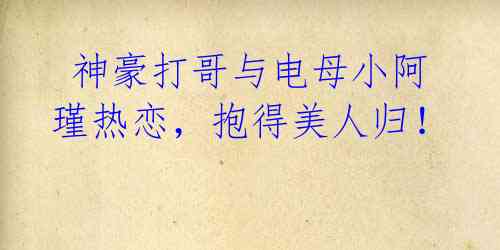 神豪打哥与电母小阿
瑾热恋，抱得美人归！